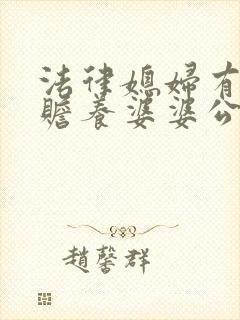 法律媳婦有
贍養婆婆公
趙馨群